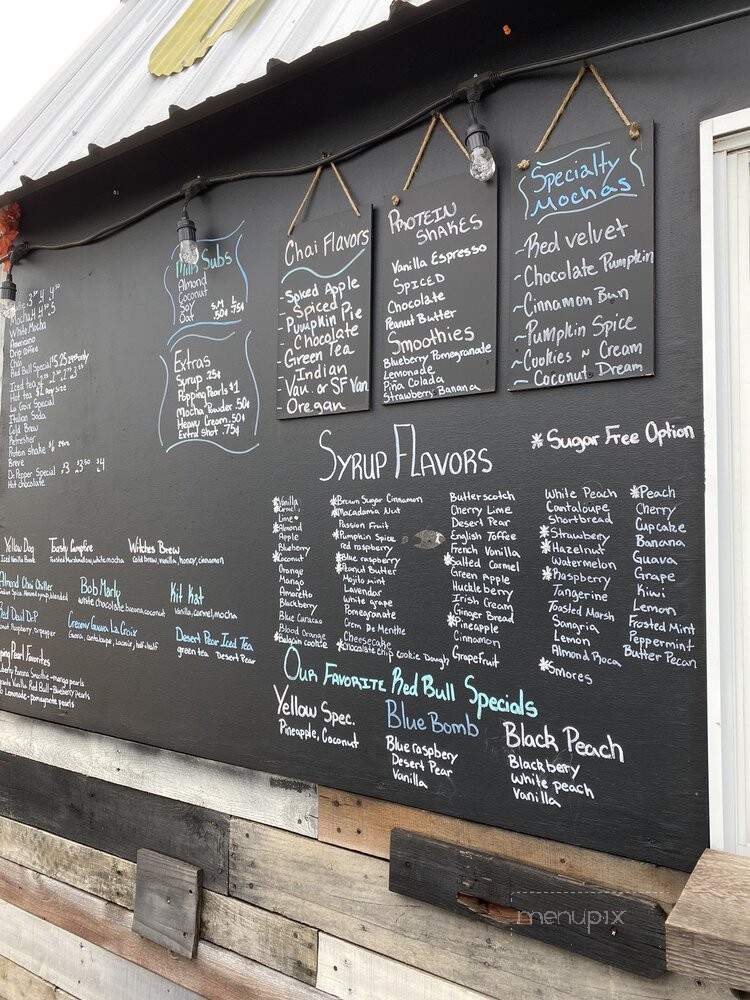 White Mocha
Americano
Drip Coffee
Chai
Red Bull Special
Iced tea
Hot tea $1
La Croix Special
Italian Soda
Cold Brew
Refresher
Protein shake
Breve
Dr. Pepper Special
Hot chocolate
Milk Subs
Almond
Coconut
Soy
Oat
S.M L
50¢ .75¢
Extras
Syrup 25¢
Popping Pearls $1
Mocha Powder .50¢
Heavy Cream .50¢
Extra Shot .75¢
Chai Flavors
- Spiced Apple
- Spiced
- Puumpkin Pie
- Chocolate
- Green Tea
- Indian
- Vau. or SF Van
- Oregan
PROTEIN
SHAKES
Vanilla Espresso
SPICED
Chocolate
Peanut Butter
Smoothies
Blueberry Pomegranate
Lemonade
Piña Colada
Strawberry Banana
Specialty
Mochas
~Red velvet
~Chocolate Pumpkin
~Cinnamon Bun
~Pumpkin Spice
~Cookies ~ Cream
~Coconut Dream
SYRUP FLAVORS
*Sugar Free Option
*Vanilla
*Carmel
Lime
*Almond
Apple
Blueberry
*Coconut
Orange
Mango
Amaretto
Blackberry
Blue Curacao
Blood Orange
*Belgain cookie
*Brown Sugar Cinnamon
*Macadamia Nut
Passion Fruit
*Pumpkin Spice
red raspberry
*Blue raspberry
*Peanut Butter
Mojito mint
Lavendar
White grape
Pomegranate
Crem De Menthe
Cheesecake
*Chocolate Chip cookie Dough
Butterscotch
Cherry Lime
Desert Pear
English Toffee
French Vanilla
*Salted Carmel
Green Apple
Huckleberry
Irish Cream
Ginger Bread
*Pineapple
Cinnamon
GrapeFruit
White Peach
Cantaloupe
Shortbread
*Strawberry
*Hazelnut
Watermelon
*Raspberry
Tangerine
Toasted Marsh
Sangria
Lemon
Almond Roca
*Smores
*Peach
Cherry
Cupcake
Banana
Guava
Grape
Kiwi
Lemon
Frosted Mint
Peppermint
Butter Pecan
Yellow Dog
Iced Vanilla Breve
Toasty Campfire
Toasted Marshmallow, white mocha
Witches Brew
Cold brew, vanilla, honey, cinnamon
Almond Chai Chiller
Bob Marly
white chocolate, banana, coconut
Kit Kat
Vanilla, carmel, mocha
Red Devil D.P
Creamy Guava La Croix
Guava, cantaloupe, Lacroix, half+half
Desert Pear Iced Tea
green tea Desert Pear
Pearl Favorites
Banana Smoothie-mango pearls
Vanilla Red Bull-Blueberry pearls
Lemonade-pomegranate pearls
Our Favorite Red Bull Specials
Yellow Spec.
Pineapple, Coconut
Blue Bomb
Blue raspbery
Desert Pear
Vanilla
Black Peach
Blackberry
White peach
Vanilla
menupix